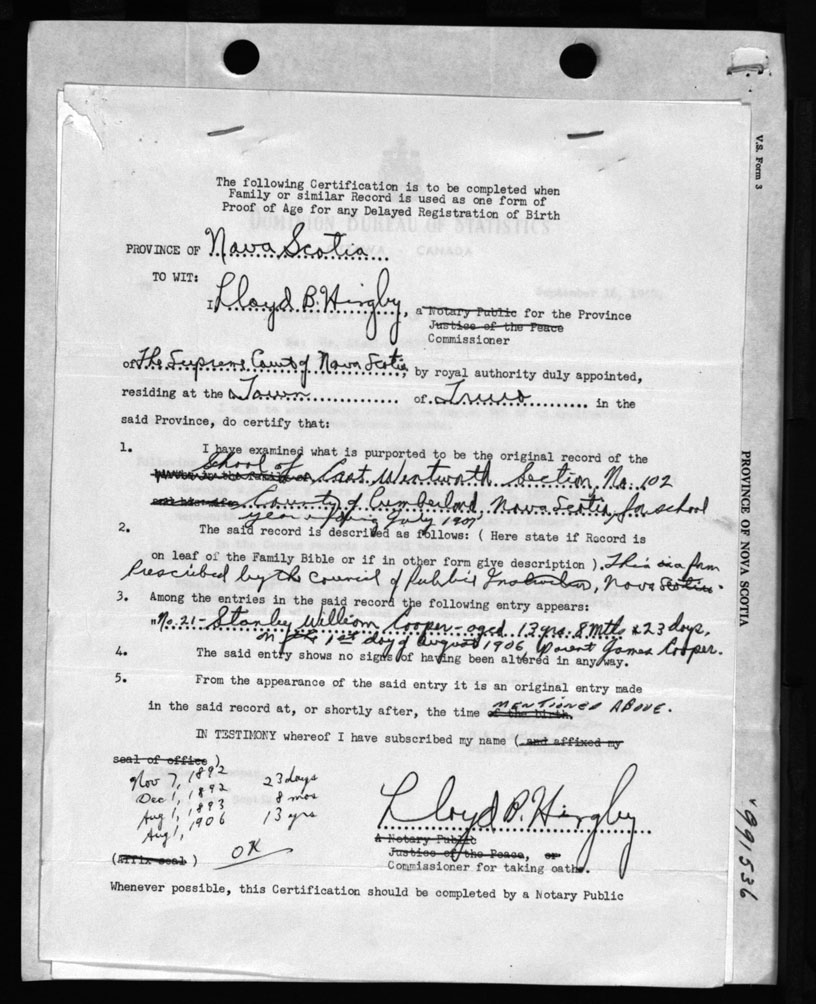 The following Certification is to be completed when
Family or similar Record is used as one form of
Proof of Age for any Delayed Registration of Birth
DOMINION BUREAU OF STATISTICS
CANADA
PROVINCE OF Nova Scotia
TO WIT:
September 16,
I, Lloyd B. Hingby, a Notary Public for the Province
Justice of the Peace
Commissioner
of The Supreme Court of Nova Scotia, by royal authority duly appointed,
residing at the Town of Truro in the
said Province, do certify that:
1. I have examined what is purported to be the original record of the
School of East Wentworth Section No. 102
County of Cumberland, Nova Scotia, for school
year ending July 1907
2. The said record is described as follows: ( Here state if Record is
on leaf of the Family Bible or if in other form give description ). This is a form
Prescribed by the Council of Public Instruction, Nova Scotia.
3. Among the entries in the said record the following entry appears:
"No. 21- Stanley William Cooper- aged 13 yrs. 8 mths & 23 days,
on the 1st day of August 1906, Parent James Cooper.
4. The said entry shows no signs of having been altered in any way.
5. From the appearance of the said entry it is an original entry made
in the said record at, or shortly after, the time of the birth. MENTIONED ABOVE.
IN TESTIMONY whereof I have subscribed my name ( and affixed my
seal of office )
Nov 7, 1892 23 days
Dec 1, 1892 8 mos
Aug 1, 1893 13 yrs
Aug 1, 1906
OK
Lloyd B. Hingby
A Notary Public
Justice of the Peace, or
(Affix seal ) Commissioner for taking oaths.
Whenever possible, this Certification should be completed by a Notary Public
V.S. Form 3
PROVINCE OF NOVA SCOTIA
991536